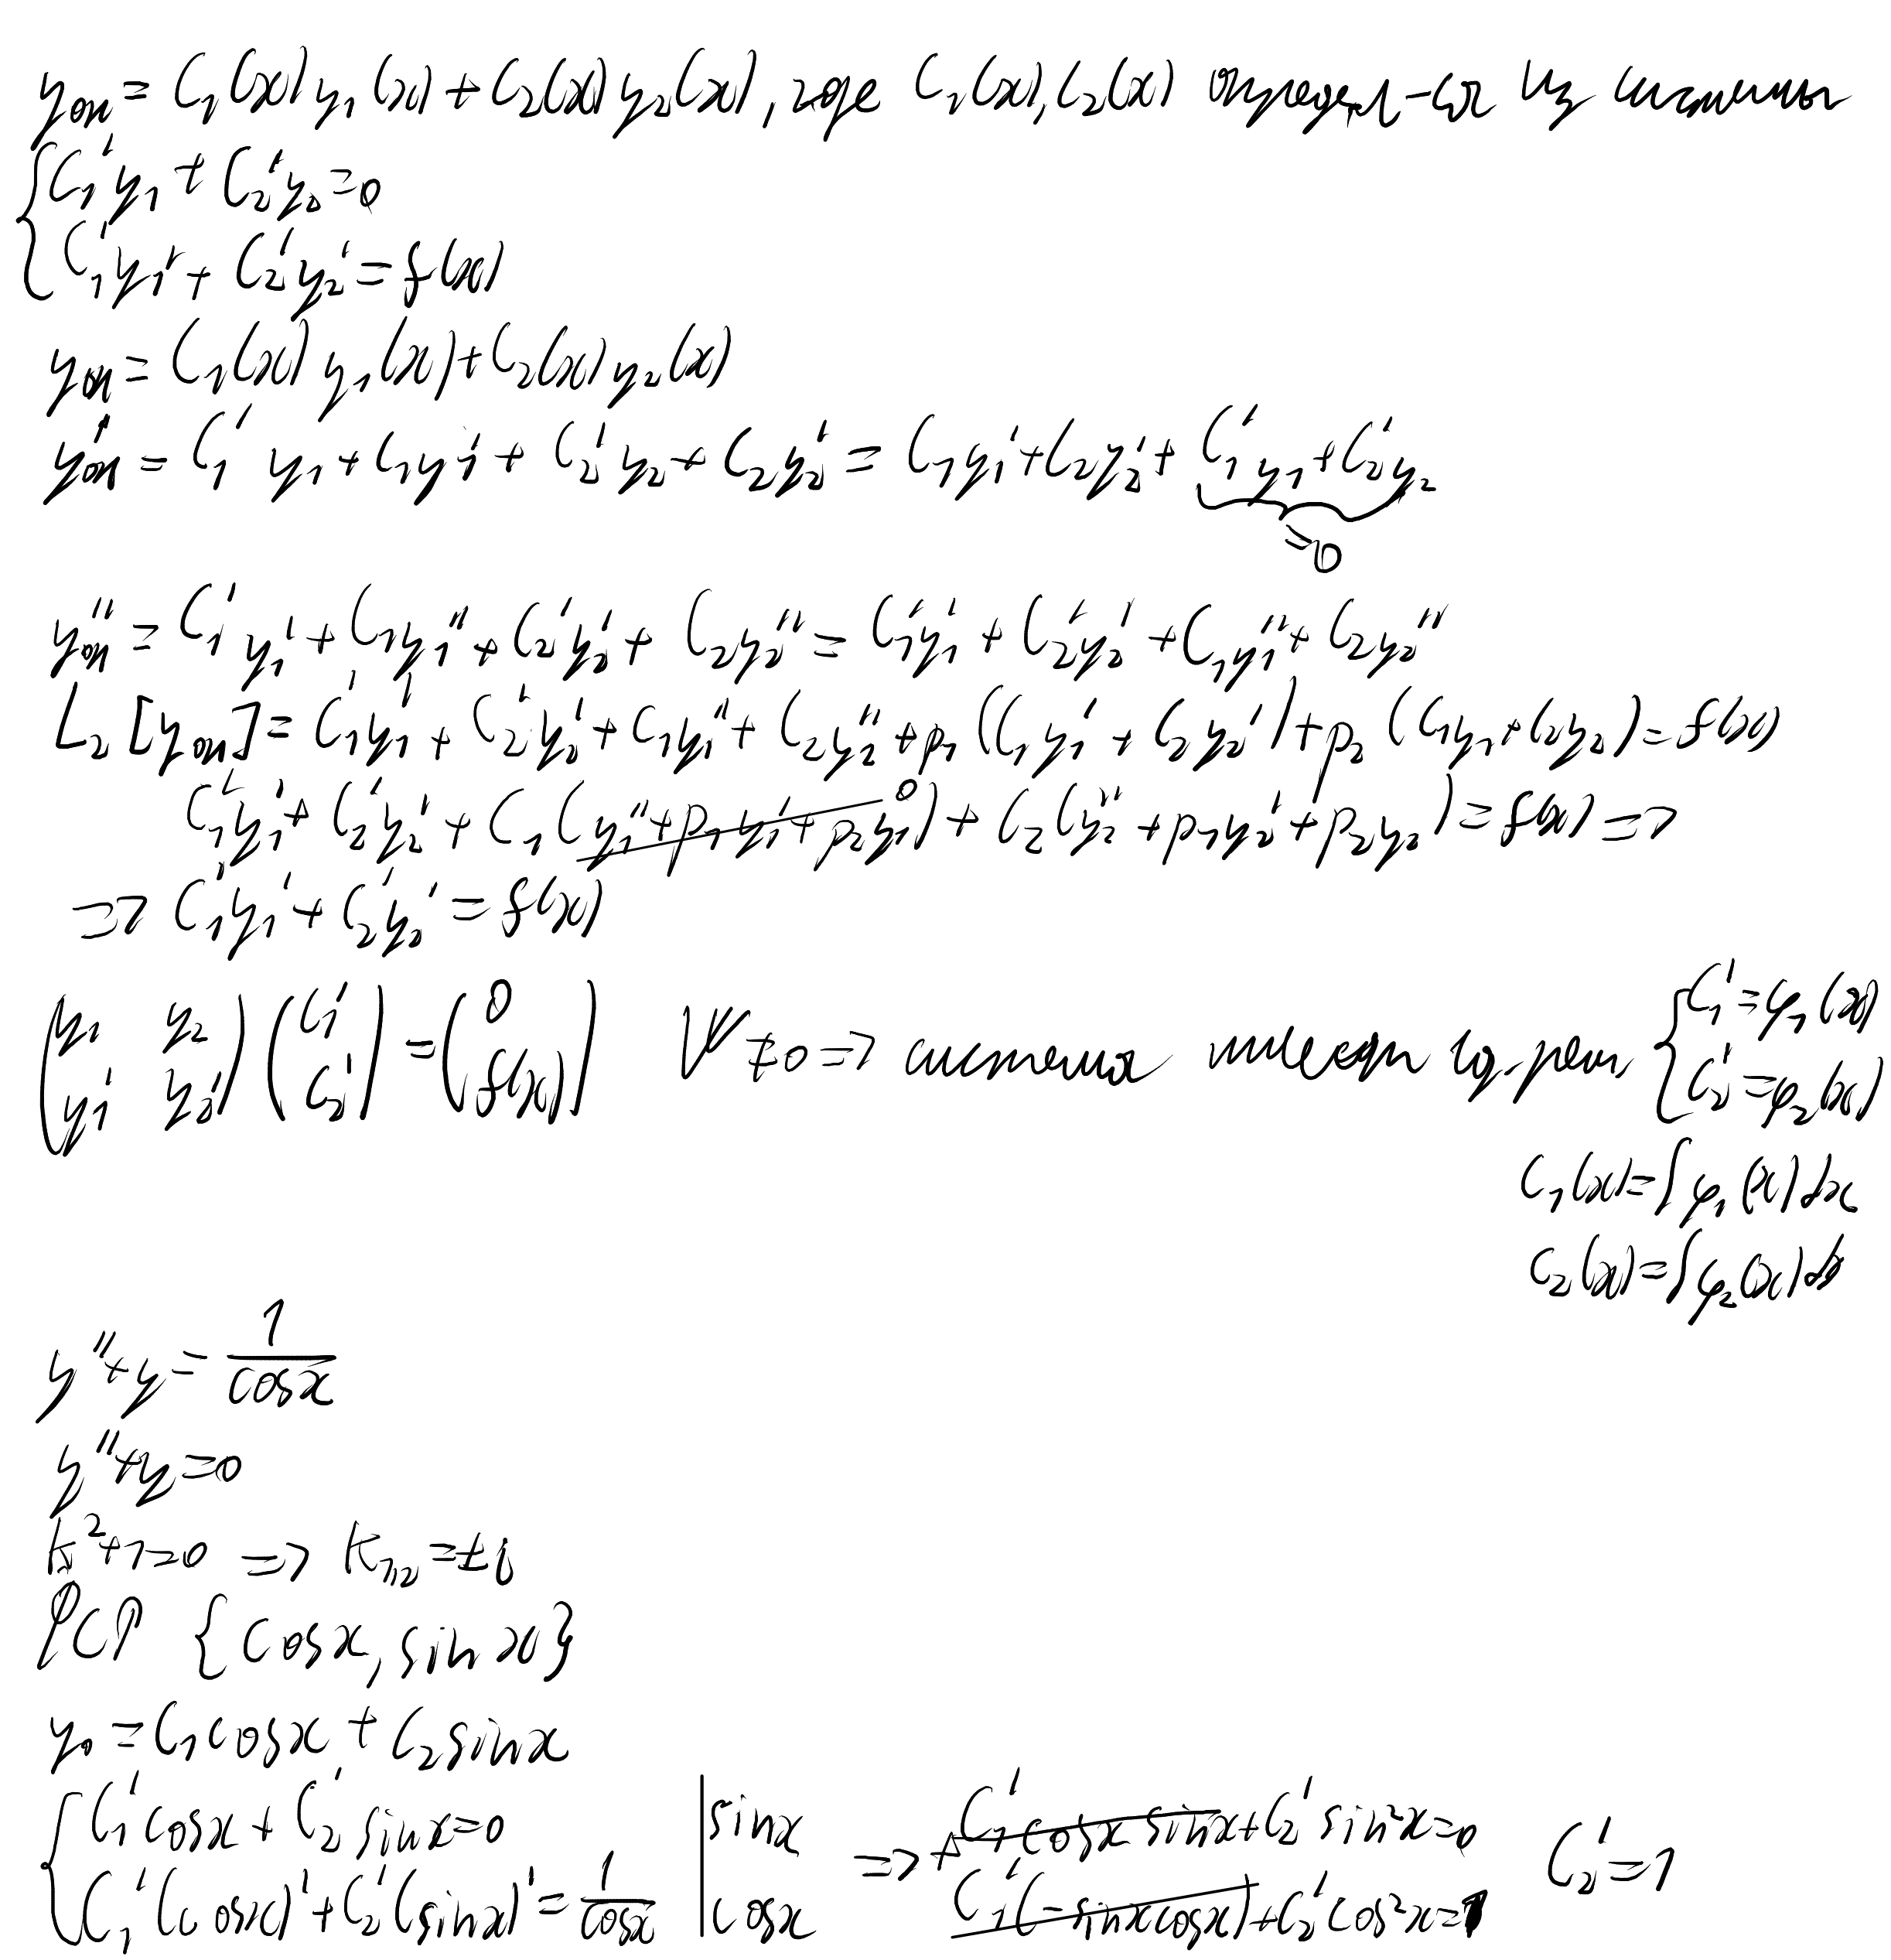 yон = C₁(x)y₁(x) + C₂(x)y₂(x), где C₁(x), C₂(x) определ-ся из системы
{ C₁'y₁ + C₂'y₂ = 0
C₁'y₁' + C₂'y₂' = f(x)
yон = C₁(x)y₁(x) + C₂(x)y₂(x)
y'он = C₁'y₁ + C₁y₁' + C₂'y₂ + C₂y₂' = C₁y₁' + C₂y₂' + C₁'y₁ + C₂'y₂
=0
y''он = C₁'y₁' + C₁y₁'' + C₂'y₂' + C₂y₂'' = C₁'y₁' + C₂'y₂' + C₁y₁'' + C₂y₂''
L₂[yон] = C₁'y₁' + C₂'y₂' + C₁y₁'' + C₂y₂'' + p₁(C₁y₁' + C₂y₂') + p₂(C₁y₁ + C₂y₂) = f(x)
C₁'y₁' + C₂'y₂' + C₁(y₁'' + p₁y₁' + p₂y₁)⁰ + C₂(y₂'' + p₁y₂' + p₂y₂) = f(x) =>
=> C₁'y₁' + C₂'y₂' = f(x)
(y₁ y₂ / y₁' y₂')(C₁' / C₂') = (0 / f(x)) W ≠ 0 => система имеет ед. реш. { C₁' = φ₁(x)
C₂' = φ₂(x)
C₁(x) = ∫φ₁(x)dx
C₂(x) = ∫φ₂(x)dx
y'' + y = 1/cosx
y'' + y = 0
k² + 1 = 0 => k₁,₂ = ±i
ФСР {cosx, sinx}
y₀ = C₁cosx + C₂sinx
{ C₁'cosx + C₂'sinx = 0 | sinx => + C₁'cosx sinx + C₂'sin²x = 0 C₂' = 1
C₁'(cosx)' + C₂'(sinx)' = 1/cosx | cosx C₁'(-sinxcosx) + C₂'cos²x = 1